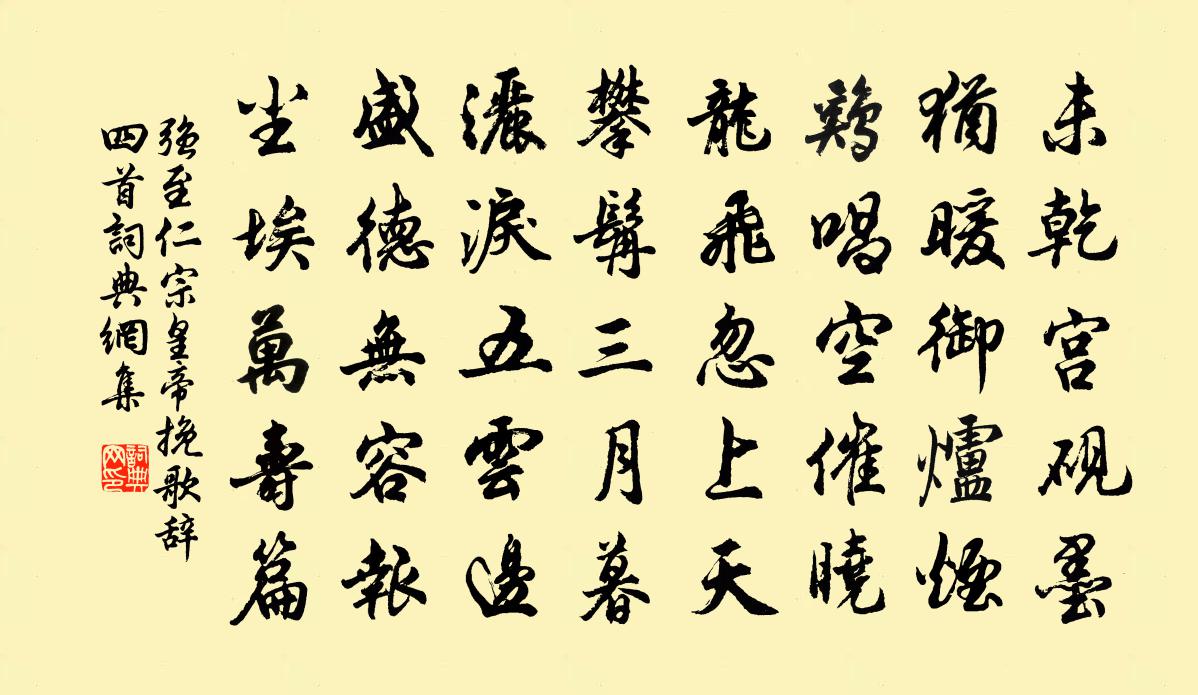 未乾宮硯墨
猶暖御爐煙
鷄唱空催曉
龍飛忽上天
攀髯三月暮
灑淚五雲邊
盛德無容報
尘埃萬壽篇
強至仁宗皇帝挽歌辞
四首詞典網集
詞典
网印